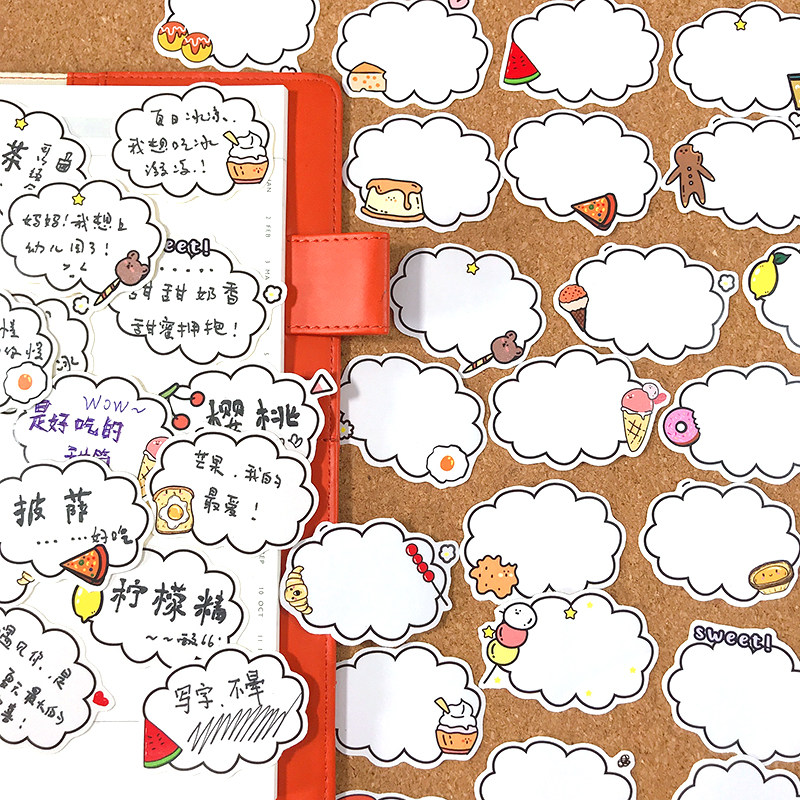 夏日冰凉..
我想吃冰
淇凌.!
茶
妈妈!我想上
幼儿园了!
sweet!
甜甜奶香
甜蜜拥抱!
WOW~
是好吃的
樱桃
芒果.我的
最爱!
披萨
......好吃
柠檬精
~~酸
遇见你.是
夏天最大的
写字.不晕
sweet!
JAN
2 FEB
3 MA
10 OCT
11